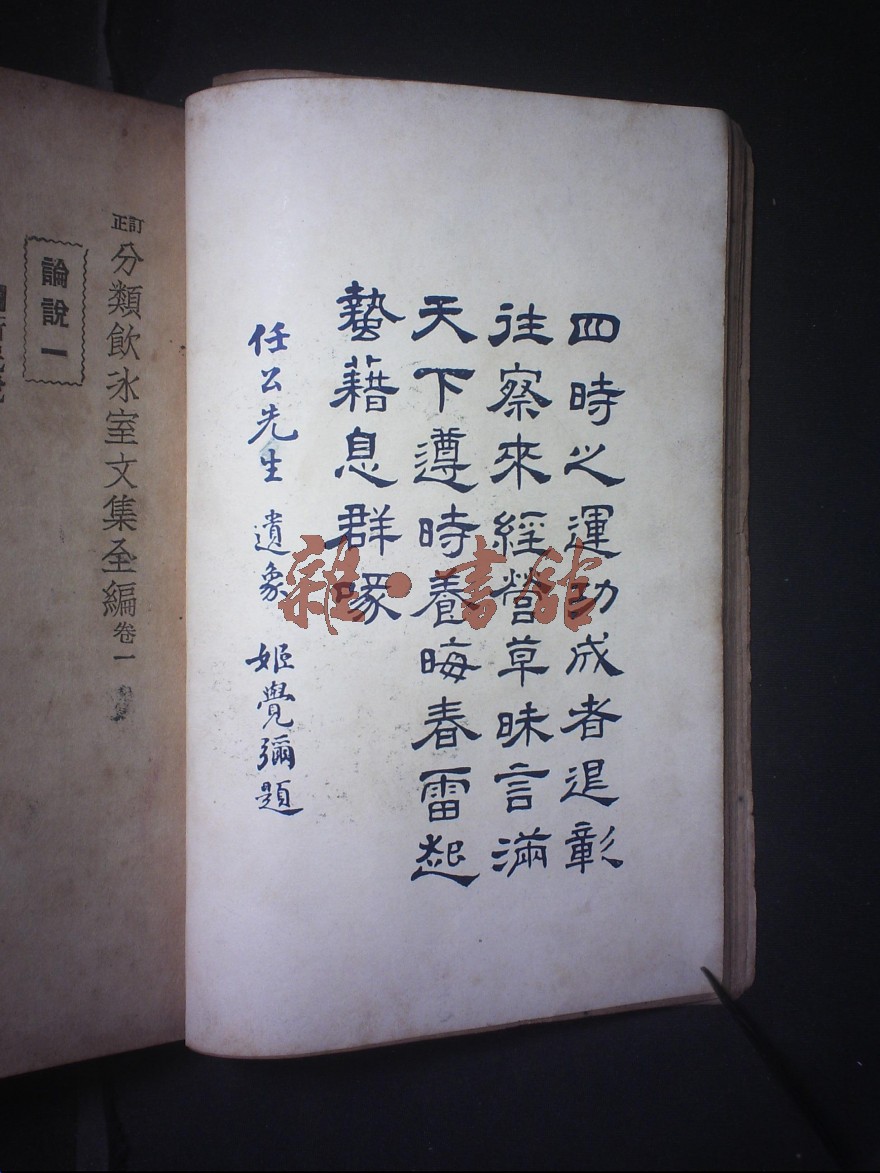 四時之運功成者退彰
往察來經營草昧言滿
天下遵時養晦春雷起
蟄藉息群喙
任公先生 遺象 姬覺彌題
雜·書館
訂正
分類飲冰室文集全編卷一
論說一